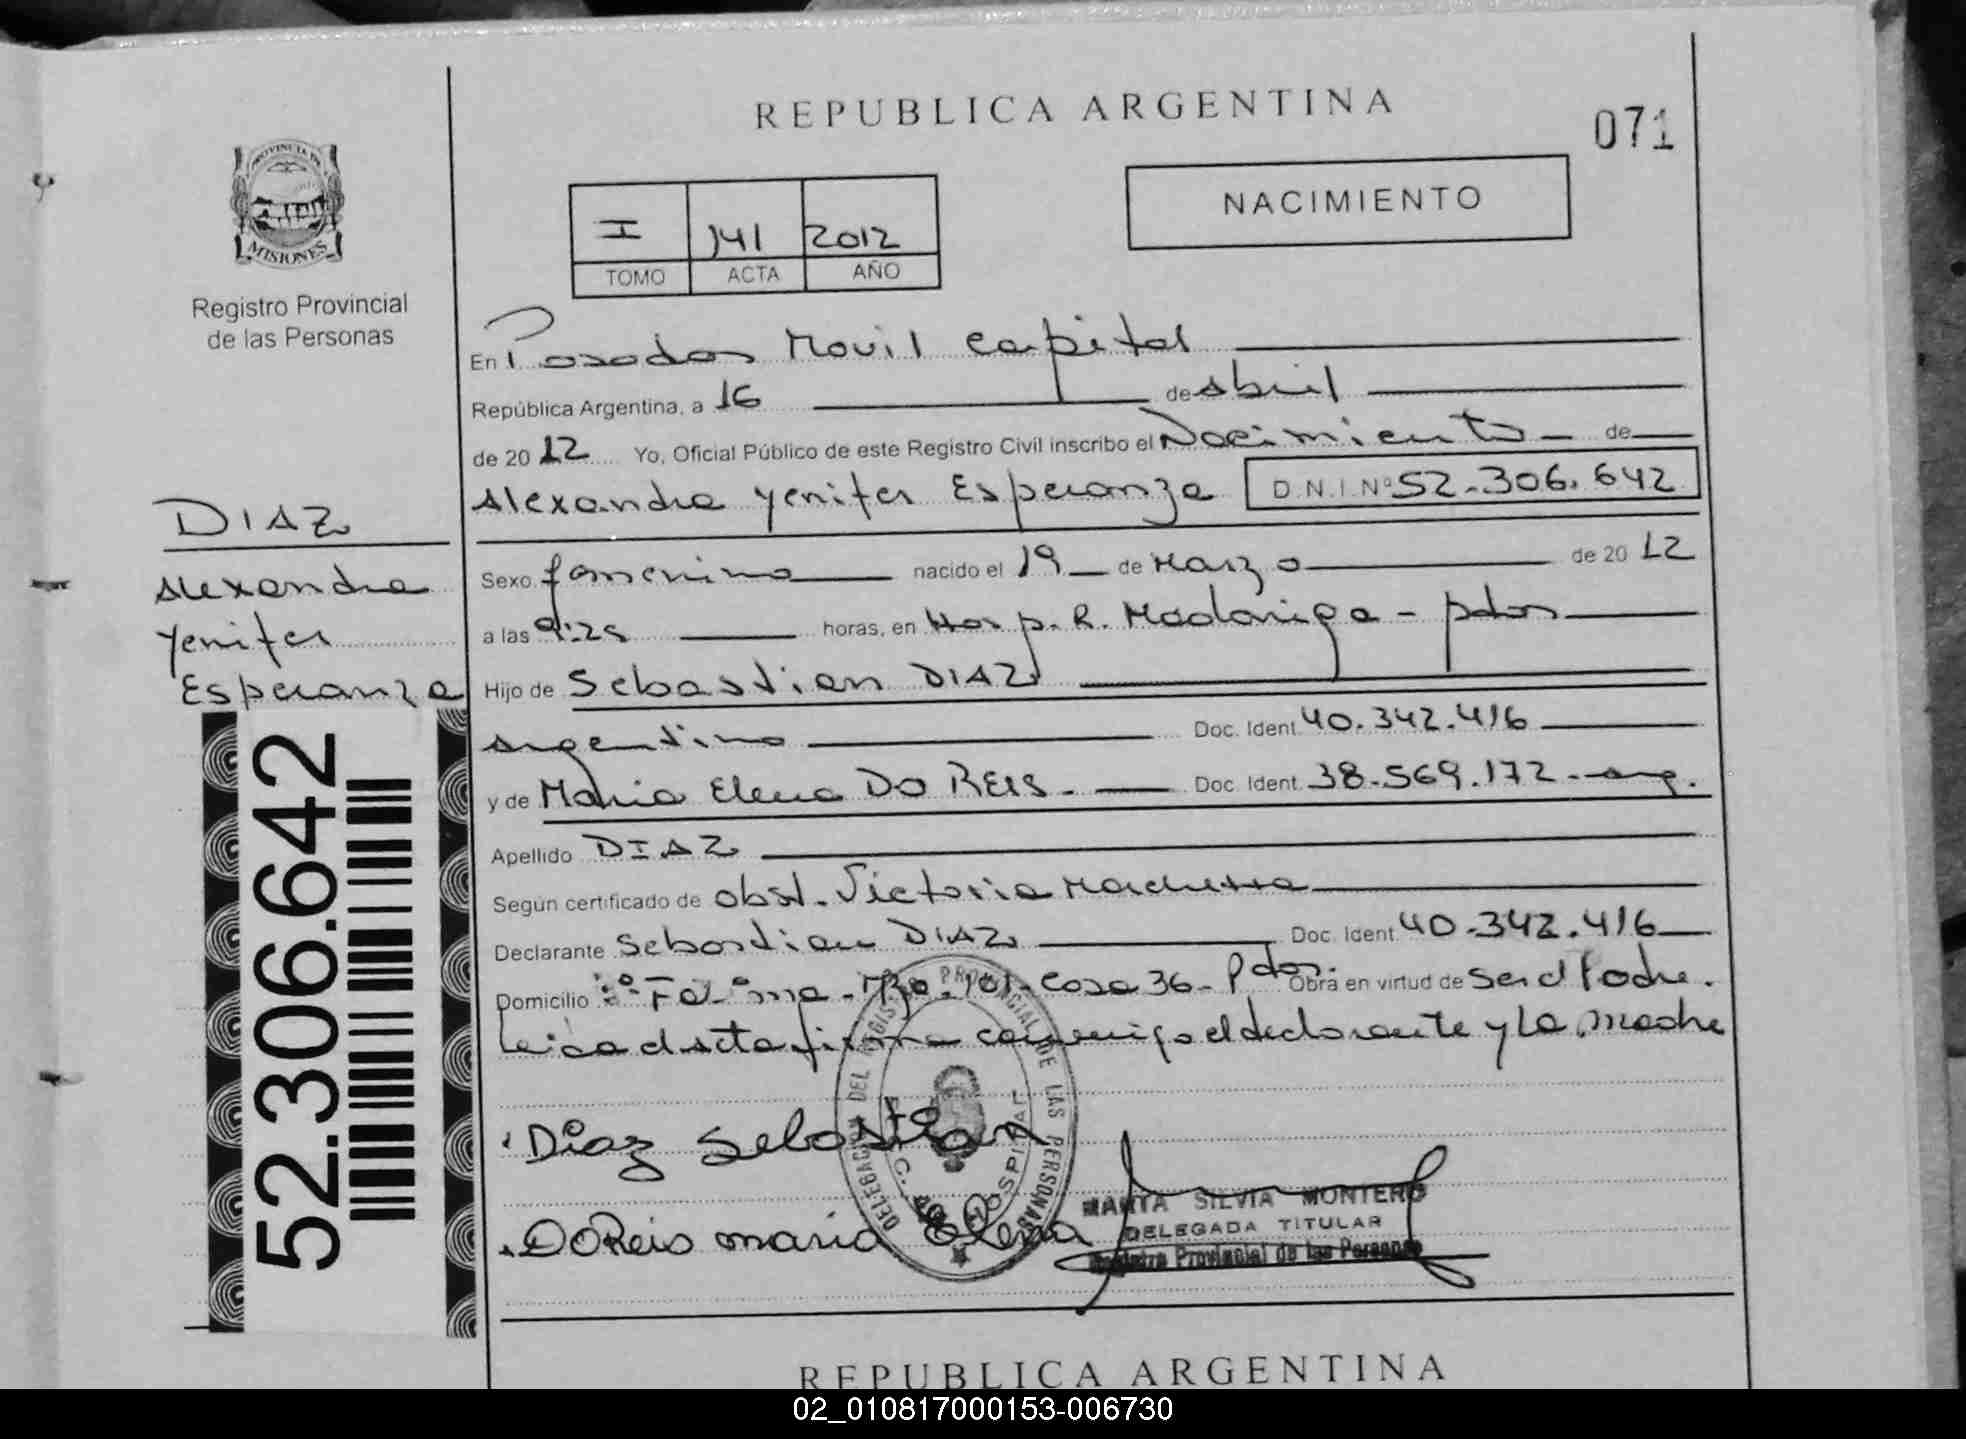 REPUBLICA ARGENTINA
071
PROVINCIA DE
MISIONES
Registro Provincial
de las Personas
I 141 2012
TOMO ACTA AÑO
NACIMIENTO
En Posadas Movil Capital
República Argentina, a 16 de Abril
de 2012 Yo, Oficial Público de este Registro Civil inscribo el Nacimiento de
Alexandra Yenifer Esperanza D.N.I.Nº 52.306.642
DIAZ
Alexandra
Yenifer
Esperanza
52.306.642
Sexo femenino nacido el 19 de Marzo de 2012
a las 9:25 horas, en Hosp. R. Madariaga - pdas
Hijo de Sebastian DIAZ
argentino Doc. Ident. 40.342.416
y de Maria Elena DO REIS. Doc. Ident. 38.569.172 - arg.
Apellido DIAZ
Según certificado de obst. Victoria
Declarante Sebastian DIAZ Doc. Ident. 40.342.416
Domicilio Fatima - Mza. 101 - Casa 36 - Pdas. Obra en virtud de ser el Padre.
Leida el acta firma conmigo el declarante y La madre
Diaz Sebastian
DoReis maria Elena
DELEGACION DEL REGISTRO PROVINCIAL DE LAS PERSONAS
HOSPITAL
MARTA SILVIA MONTERO
DELEGADA TITULAR
Registro Provincial de las Personas
REPUBLICA ARGENTINA
02_010817000153-006730